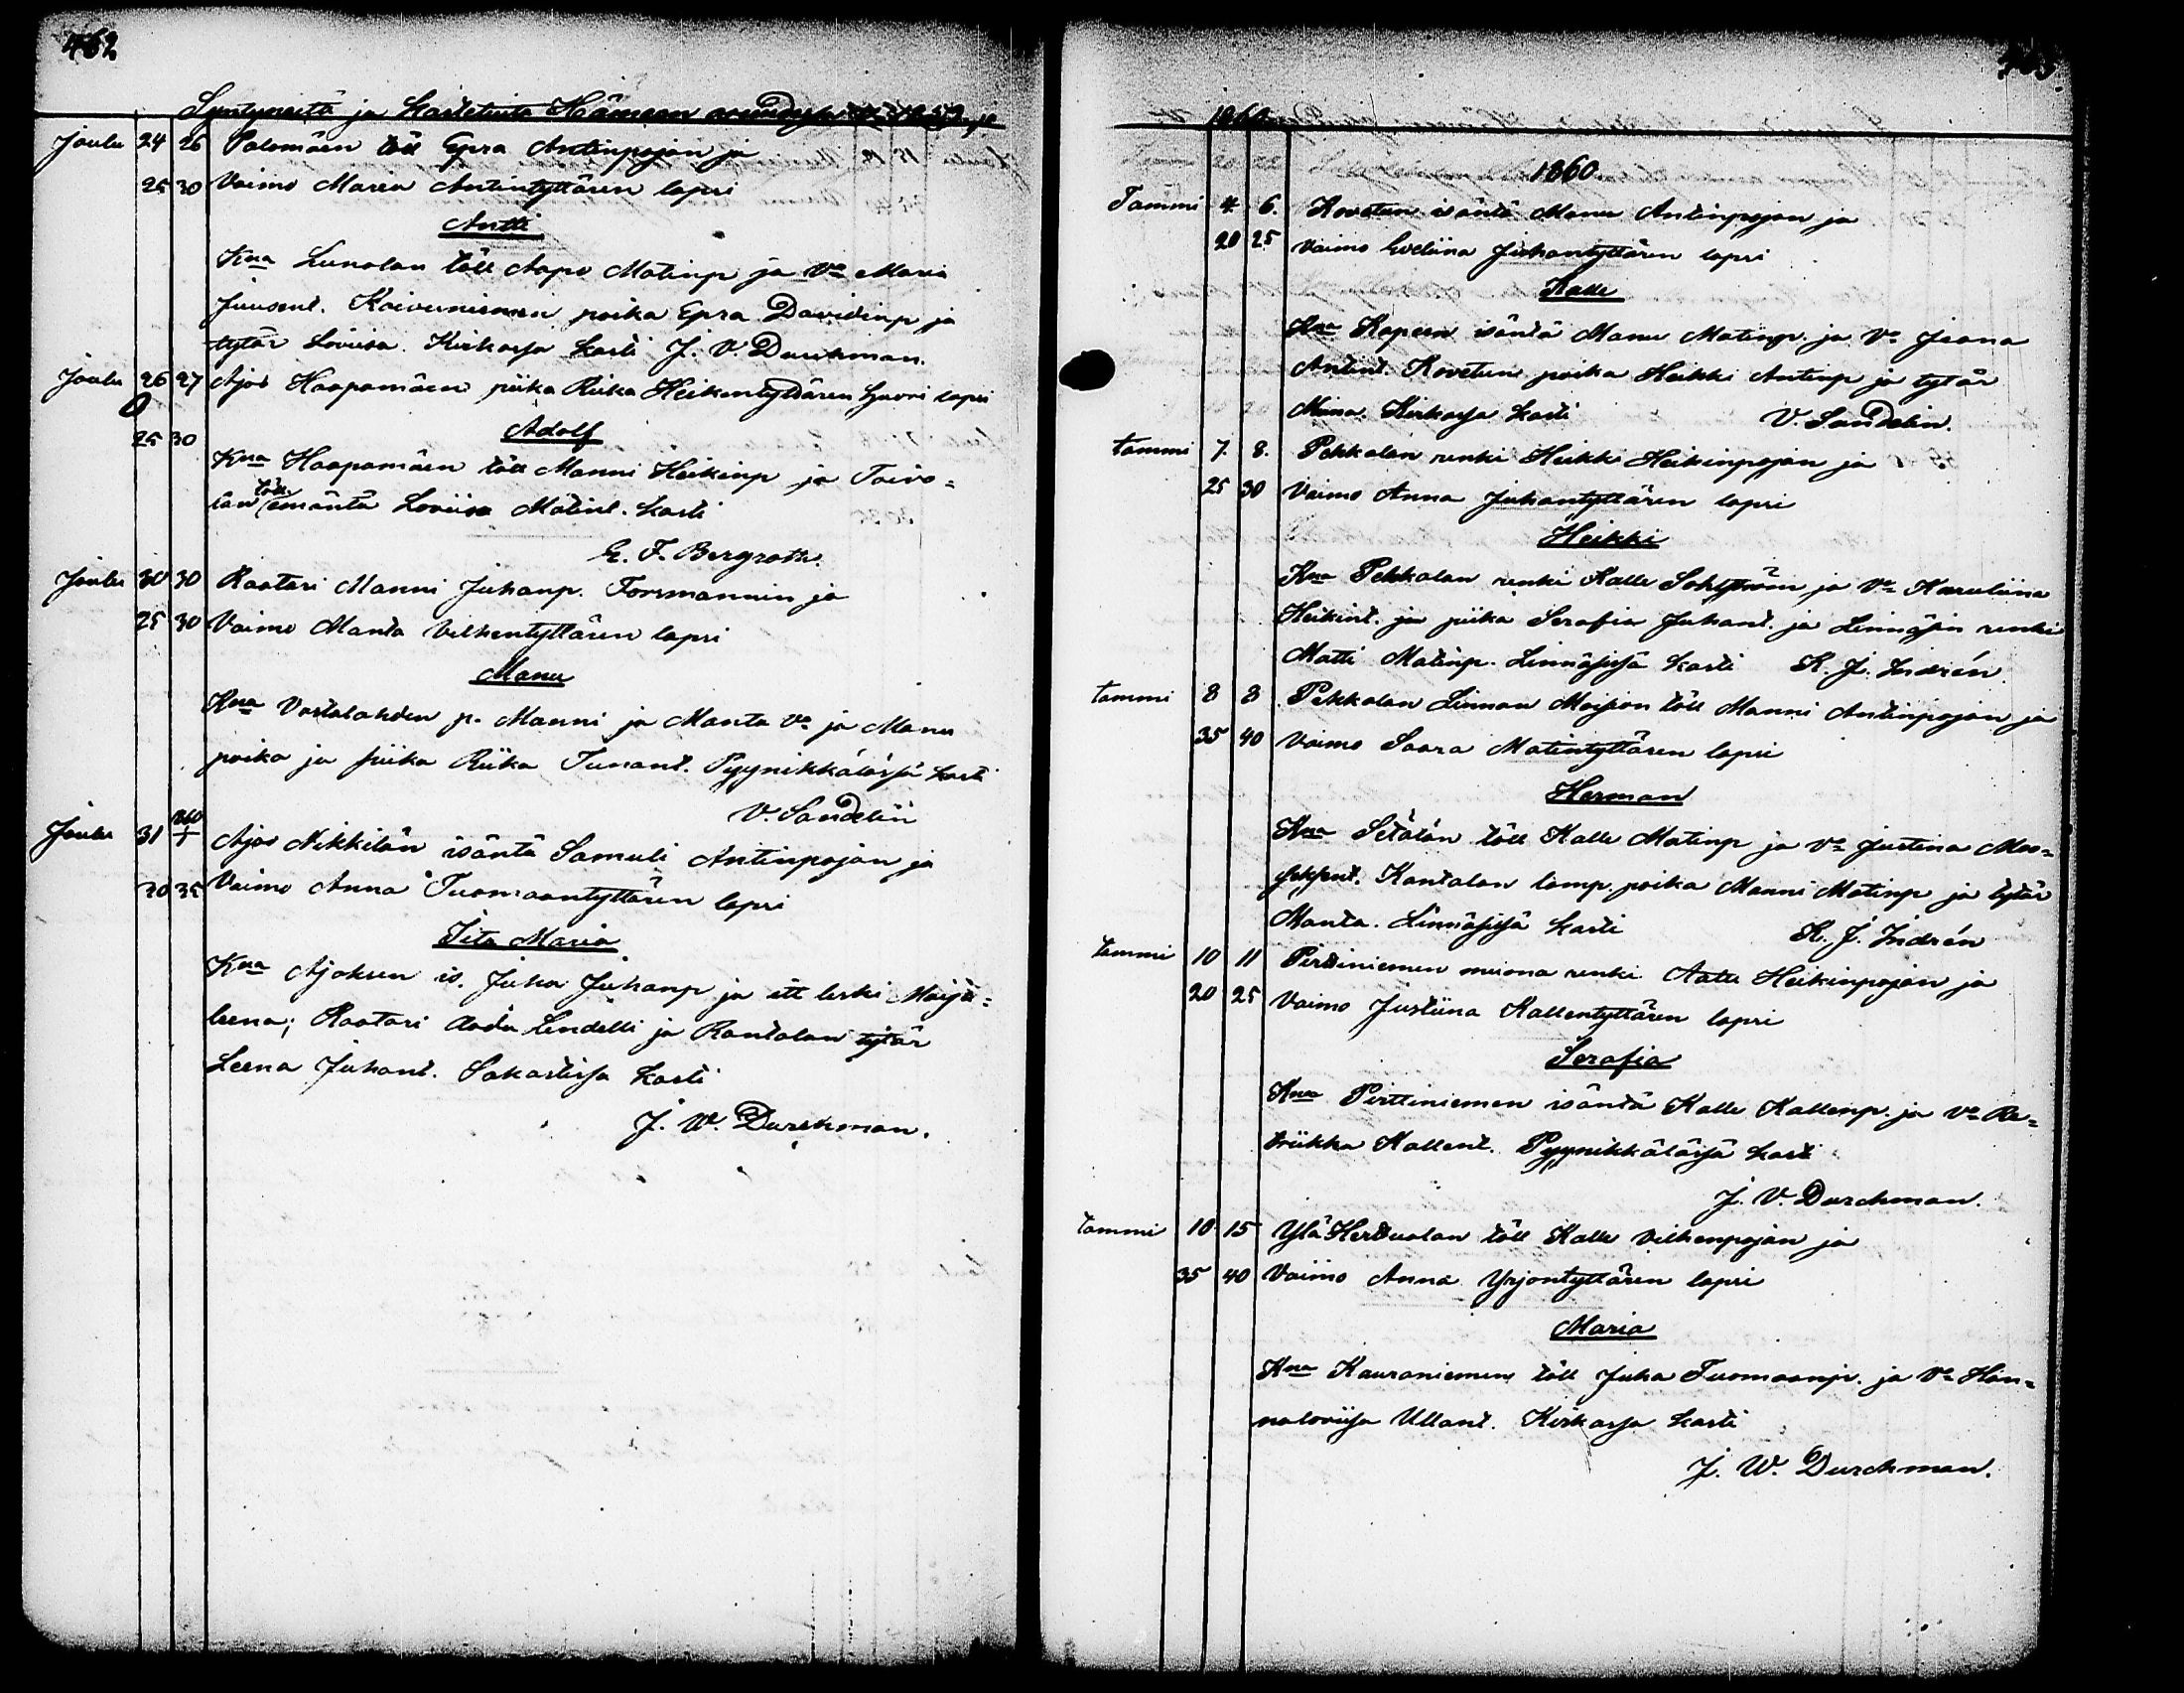 462
Syntyneitä ja Kastetuita v. 1859 ja
Joulu 24 26 Palomäen töll Epra Antinpojan ja
25 30 Vaimo Maria Antintyttären lapsi
Antti
Kna Lunolan töll Aapo Matinp ja Vo Maria
Juusent. Koivuniemen poika Epra Davidinp ja
tytär Loviisa. Kirkossa kasti J. V. Durchman.
Joulu 26 27 Ajos Haapamäen piika Riika Heikentyttären huori lapsi
25 30 Adolf
Kna Haapamäen töll Manni Heikinp ja Toivo=
lan töll emäntä Loviisa Matint. kasti
E. F. Bergroth.
Joulu 30 30 Raatari Manni Juhanp. Forsmannin ja
25 30 Vaimo Manta Vilhentyttären lapsi
Manu
Kna Vastalahden p. Manni ja Manta Vo ja Manu
poika ja piika Riika Tunant. Pyynikkälässä kasti
V. Sandelin
Joulu 31 1860/1 Ajos Nikkilän isäntä Samuli Antinpojan ja
30 35 Vaimo Anna Tuomaantyttären lapsi
Iita Maria
Kna Ajoksen is. Juha Juhanp ja itt leski Maija=
leena; Raatari Aadu Lendelli ja Rantalan tytär
Leena Juhant. Sakastissa kasti
J. W. Durchman.
463
1860
1860
Tammi 4 6. Kovetun isäntä Manu Antinpojan ja
20 25 Vaimo Eveliina Juhantyttären lapsi
Kalle
Kna Kapeen isäntä Manu Matinp. ja Vo Jeana
Antint. Kovetun poika Heikki Antinp ja tytär
Miina. Kirkossa kasti V. Sandelin.
tammi 7. 8. Pekkolan renki Heikki Heikinpojan ja
25 30 Vaimo Anna Juhantyttären lapsi
Heikki
Kna Pekkalan renki Kalle ja Vo Karuliina
Heikint. ja piika Serafia Juhant. ja Linnäisin renki
Matti Matinp. Linnäisissä kasti K. J. Indrén.
tammi 8 8 Pekkolan Linnan Moision töll Manni Antinpojan ja
35 40 Vaimo Saara Matintyttären lapsi
Herman
Kna Setälän töll Kalle Matinp ja Vo Justina Moo=
Kantalan lamp. poika Manni Matinp ja tytär
Manta. Linnäisissä kasti K. J. Indrén
tammi 10 11 Pirtiniemen muona renki Aatu Heikinpojan ja
20 25 Vaimo Justiina Kallentyttären lapsi
Serafia
Kna Pirttiniemen isäntä Kalle Kallenp. ja Vo Re=
triikka Kallent. Pyynikkälässä kasti
J. V. Durchman.
tammi 10 15 Ylä Herdualan töll Kalle Vilhenpojan ja
35 40 Vaimo Anna Yrjontyttären lapsi
Maria
Kna Kauraniemen töll Juha Tuomaanp. ja Vo Han=
naloviisa Ullant. Kirkossa kasti
J. W. Durchman.